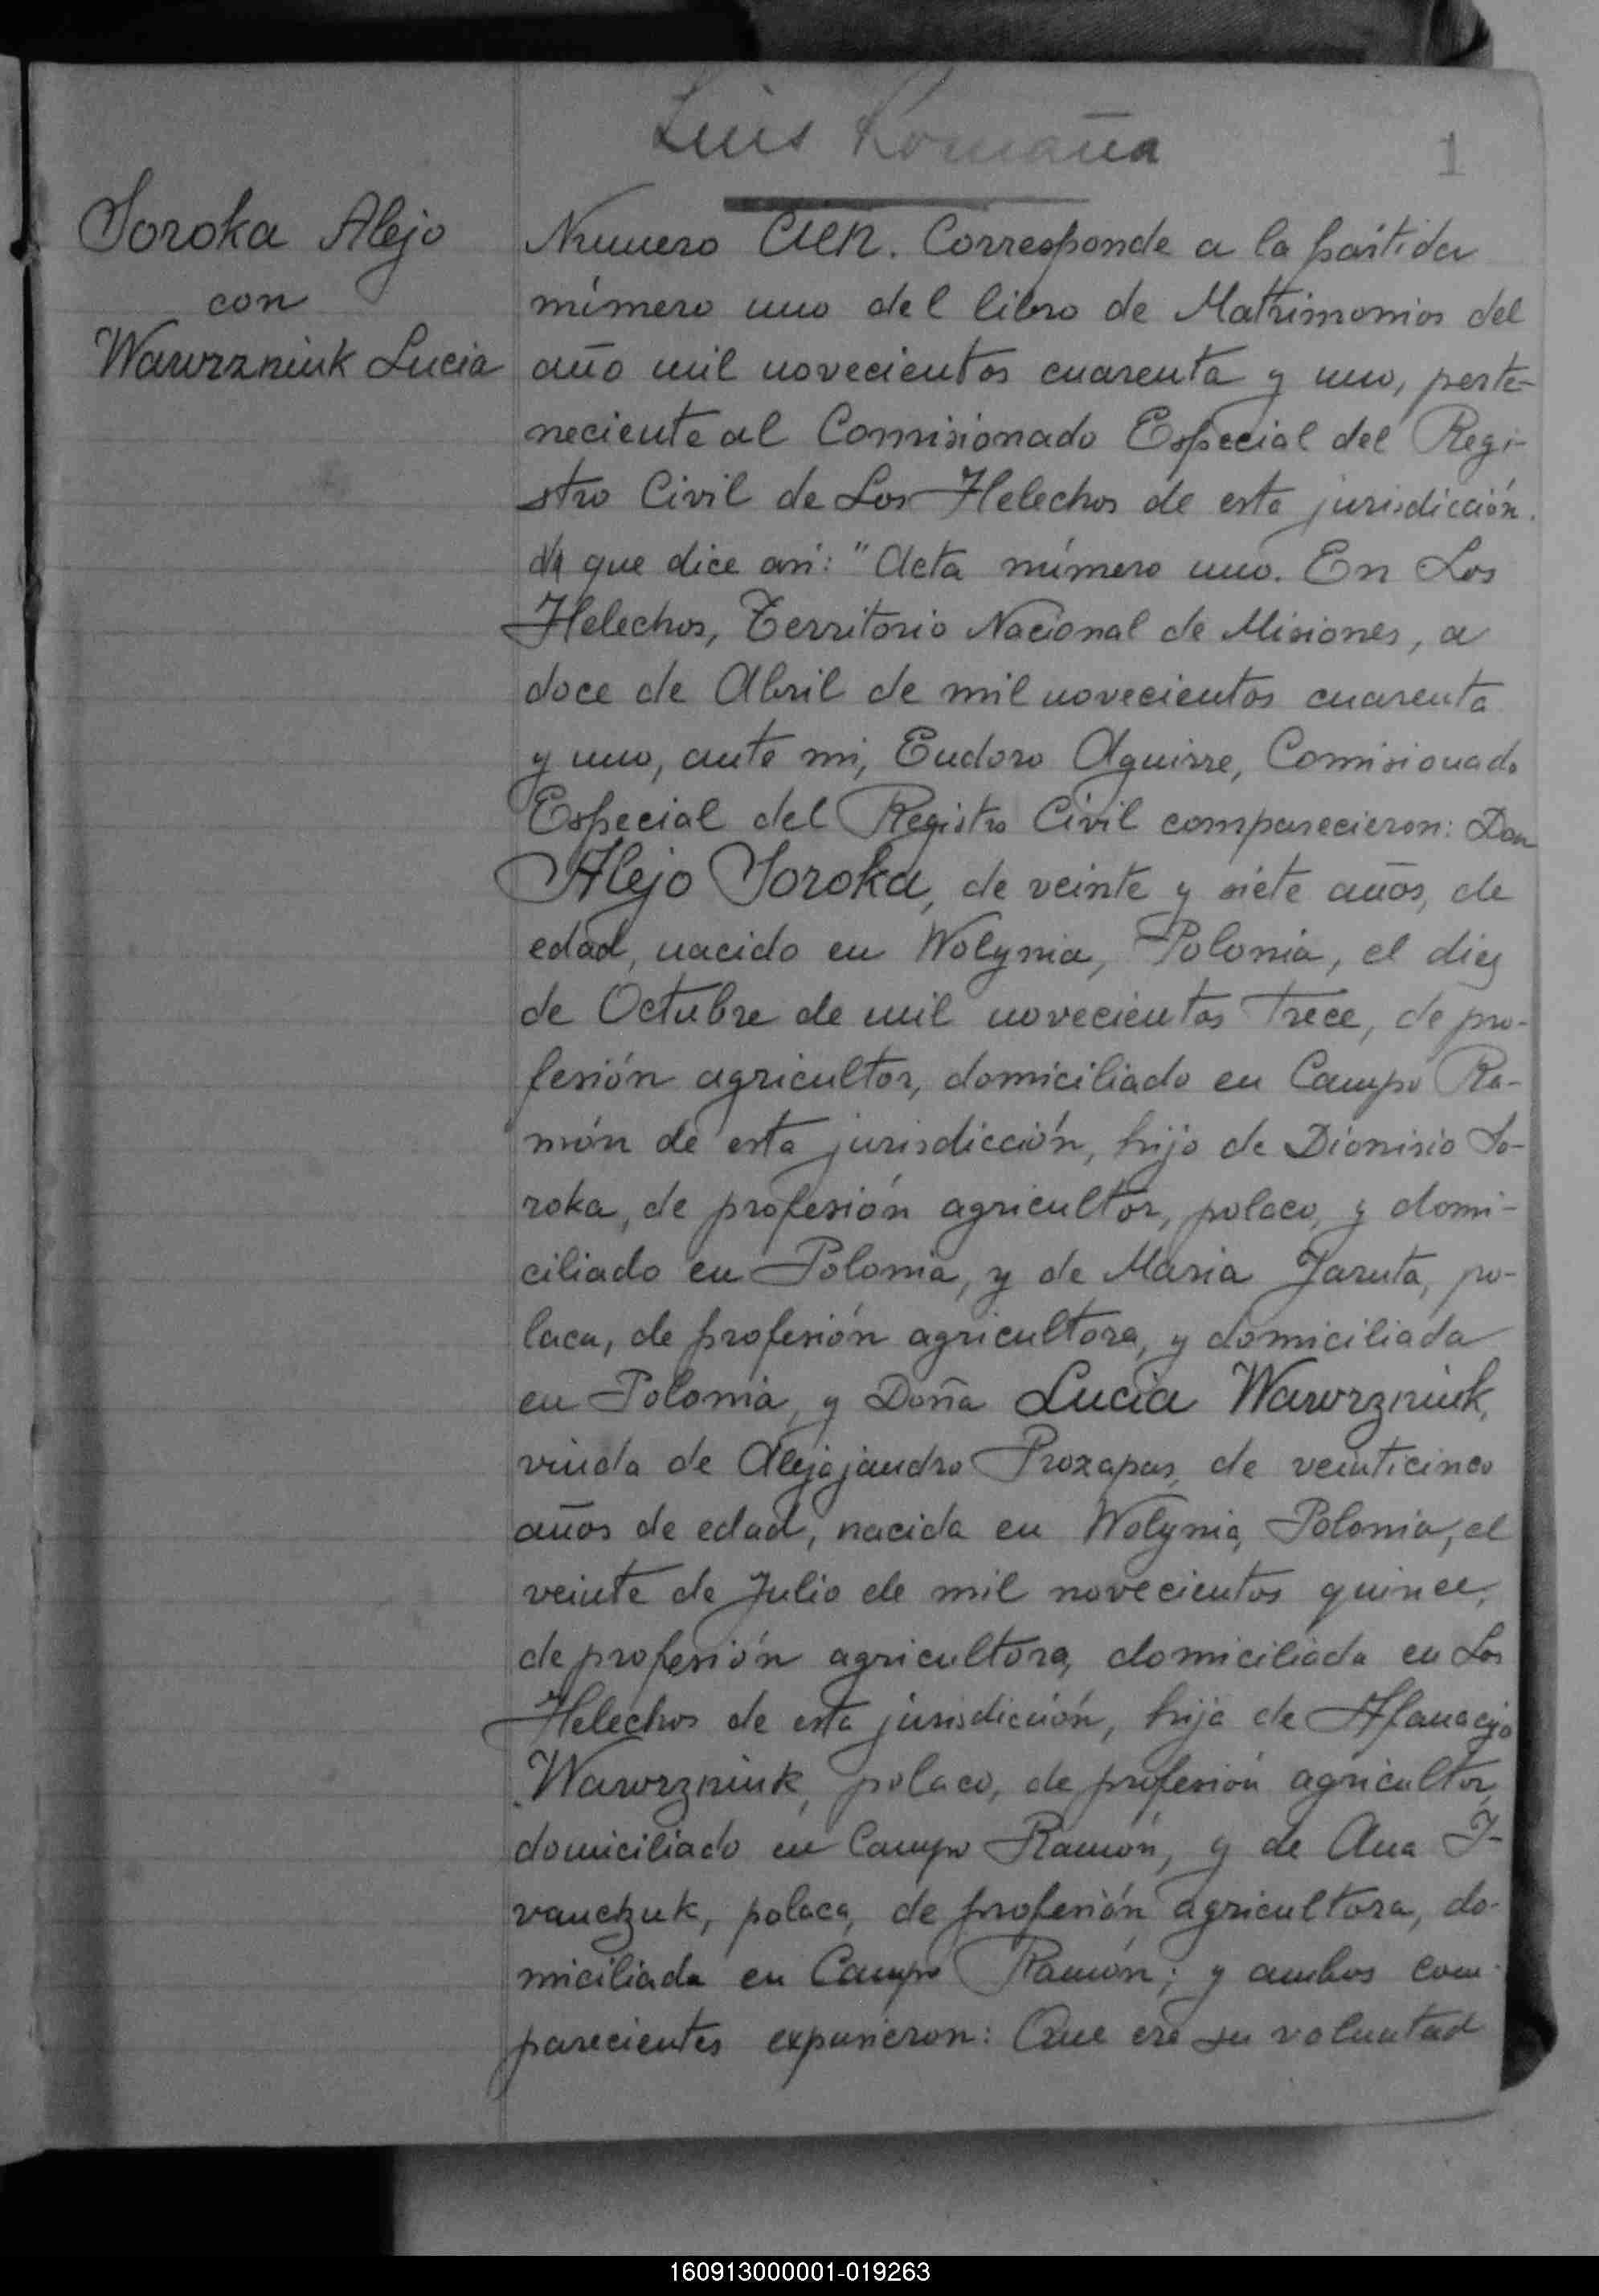 Luis Romaña
1
Soroka Alejo
con
Wawrzniuk Lucia
Numero CIEN. Corresponde a la partida
número uno del libro de Matrimonios del
año mil novecientos cuarenta y uno, perte-
neciente al Comisionado Especial del Regi-
stro Civil de Los Helechos de esta jurisdicción.
que dice asi: "Acta número uno. En Los
Helechos, Territorio Nacional de Misiones, a
doce de Abril de mil novecientos cuarenta
y uno, ante mi, Eudoro Aguirre, Comisionado
Especial del Registro Civil comparecieron: Don
Alejo Soroka, de veinte y siete años, de
edad, nacido en Wolynia, Polonia, el diez
de Octubre de mil novecientos trece, de pro-
fesión agricultor, domiciliado en Campo Ra-
món de esta jurisdicción, hijo de Dionisio So-
roka, de profesión agricultor, polaco, y domi-
ciliado en Polonia, y de Maria Jaruta, po-
laca, de profesión agricultora, y domiciliada
en Polonia, y Doña Lucia Wawrzniuk,
viuda de Alejajandro Prozapas, de veinticinco
años de edad, nacida en Wolynia, Polonia, el
veinte de Julio de mil novecientos quince,
de profesión agricultora, domiciliada en Los
Helechos de esta jurisdicción, hija de Afanacijo
Wawrzniuk, polaco, de profesión agricultor,
domiciliado en Campo Ramón, y de Ana I-
vanczuk, polaca, de profesión agricultora, do-
miciliada en Campo Ramón; y ambos com-
parecientes expusieron: Que era su voluntad
160913000001-019263